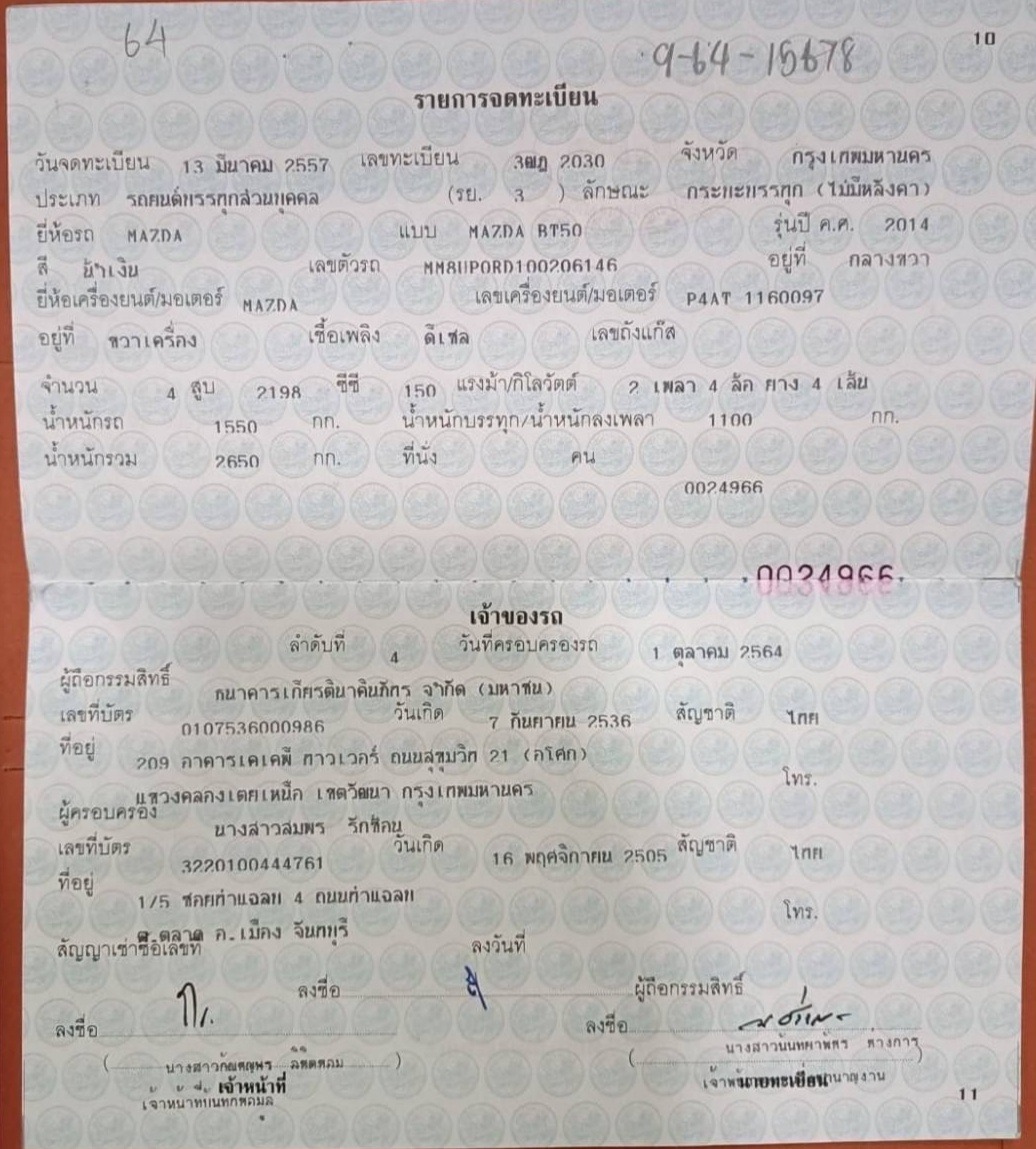 64
9-64-15678
10
รายการจดทะเบียน
วันจดทะเบียน 13 มีนาคม 2557 เลขทะเบียน 3ฒฎ 2030 จังหวัด กรุงเทพมหานคร
ประเภท รถยนต์บรรทุกส่วนบุคคล (รย. 3 ) ลักษณะ กระบะบรรทุก (ไม่มีหลังคา)
ยี่ห้อรถ MAZDA แบบ MAZDA BT50 รุ่นปี ค.ศ. 2014
สี น้ำเงิน เลขตัวรถ MM8UP0RD100206146 อยู่ที่ กลางขวา
ยี่ห้อเครื่องยนต์/มอเตอร์ MAZDA เลขเครื่องยนต์/มอเตอร์ P4AT 1160097
อยู่ที่ ขวาเครื่อง เชื้อเพลิง ดีเซล เลขถังแก๊ส
จำนวน 4 สูบ 2198 ซีซี 150 แรงม้า/กิโลวัตต์ 2 เพลา 4 ล้อ ยาง 4 เส้น
น้ำหนักรถ 1550 กก. น้ำหนักบรรทุก/น้ำหนักลงเพลา 1100 กก.
น้ำหนักรวม 2650 กก. ที่นั่ง คน
0024966
0024966
เจ้าของรถ
ลำดับที่ 4 วันที่ครอบครองรถ 1 ตุลาคม 2564
ผู้ถือกรรมสิทธิ์ ธนาคารเกียรตินาคินภัทร จำกัด (มหาชน)
เลขที่บัตร 0107536000986 วันเกิด 7 กันยายน 2536 สัญชาติ ไทย
ที่อยู่ 209 อาคารเคเคพี ทาวเวอร์ ถนนสุขุมวิท 21 (อโศก)
โทร.
แขวงคลองเตยเหนือ เขตวัฒนา กรุงเทพมหานคร
ผู้ครอบครอง นางสาวสมพร รักซ้อน
เลขที่บัตร 3220100444761 วันเกิด 16 พฤศจิกายน 2505 สัญชาติ ไทย
ที่อยู่ 1/5 ซอยท่าแฉลบ 4 ถนนท่าแฉลบ
โทร.
ต.ตลาด อ.เมือง จันทบุรี
สัญญาเช่าซื้อเลขที่ ลงวันที่
ลงชื่อ ผู้ถือกรรมสิทธิ์
ลงชื่อ ลงชื่อ
( ) (นางสาวนันทยาพัทร ทางการ)
เจ้าหน้าที่ นายทะเบียน
เจ้าหน้าที่บันทึกข้อมูล
11